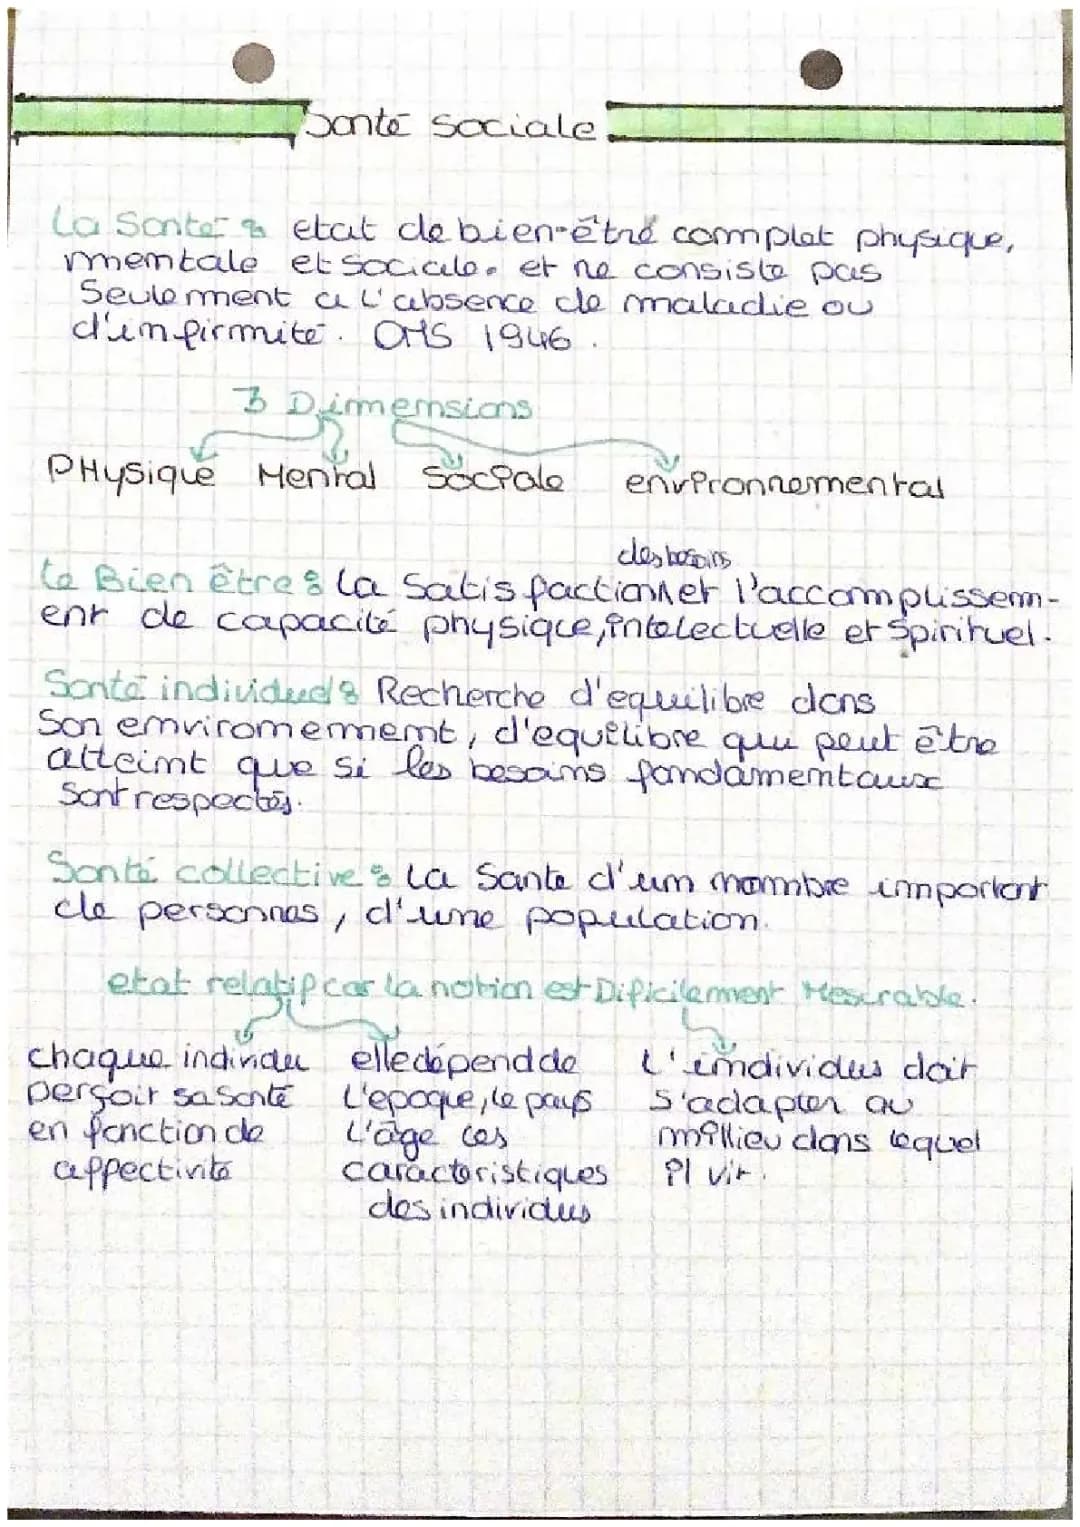 Santé sociale
La Santé : etat de bien-être complet physique,
mentale et sociale. et ne consiste pas
Seulement a l'absence de maladie ou
d'infirmité. OMS 1946.
3 Dimensions
PHysique Mental Sociale environnemental
des besoins
Le Bien être : La Satisfaction et l'accomplissem-
ent de capacité physique, intelectuelle et Spirituel.
Santé individuel : Recherche d'equilibre dans
Son environement, d'equilibre qui peut être
atteint que si les besoins fondamentaux
Sont respectés.
Santé collective : La Sante d'un nombre important
de personnes, d'une population.
etat relatif car la notion est Dificilement Mesurable.
chaque individu elle dépend de L'individus doit
perçoit sa santé L'epoque, le pays S'adapter au
en fonction de L'âge ces millieu dans lequel
affectivité caractéristiques il vit.
des individus